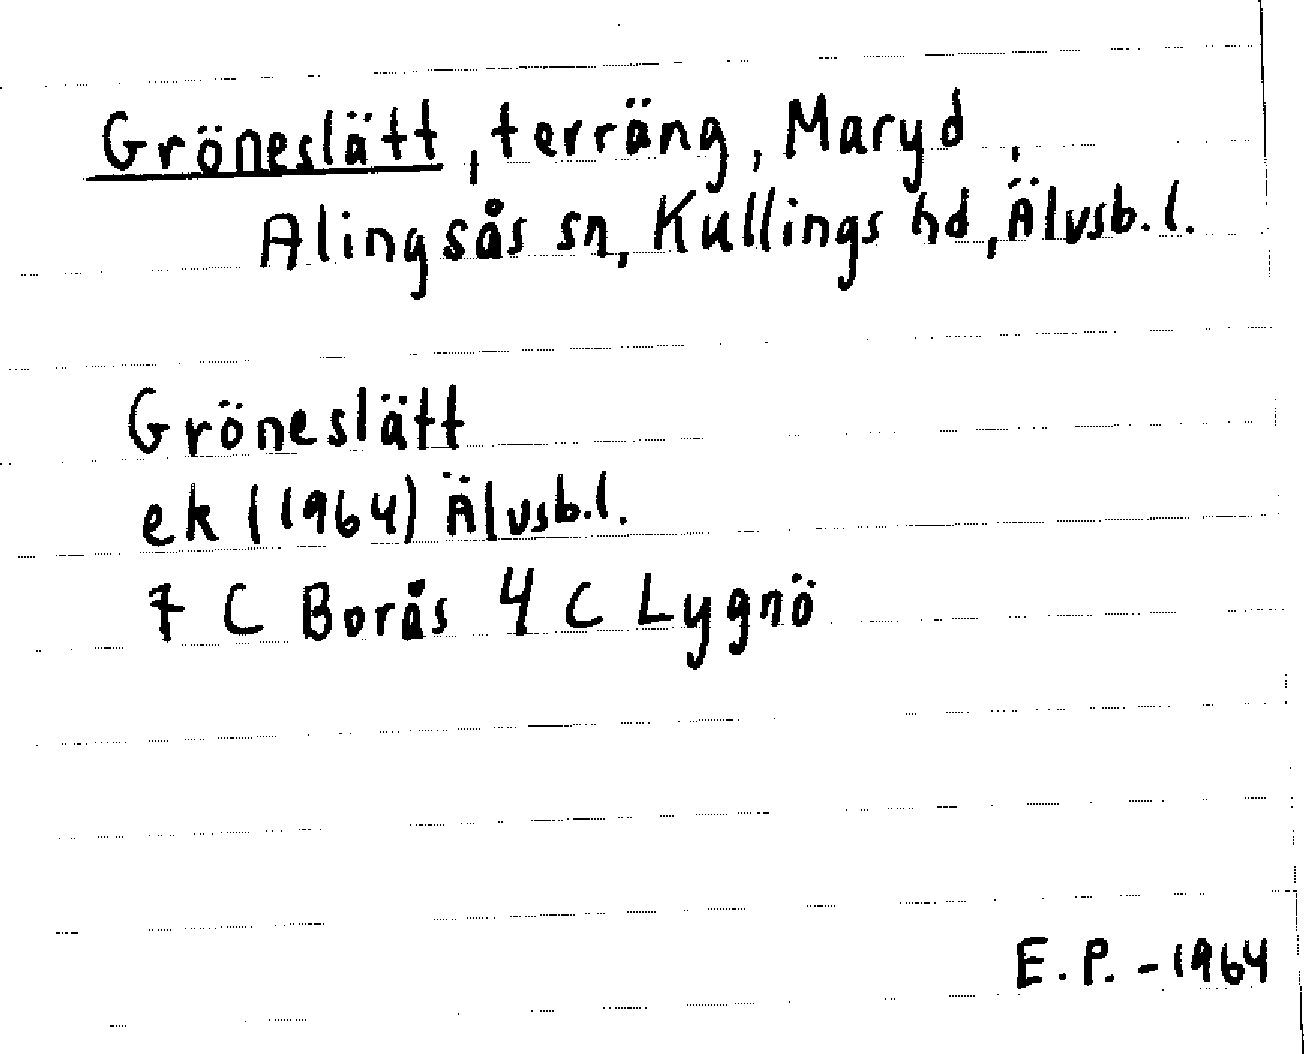 Gröneslätt, terräng, Maryd,
Alingsås sn, Kullings hd, Älvsb.l.
Gröneslätt
ek (1964) Älvsb.l.
7 C Borås 4 C Lygnö
E.P. - 1964